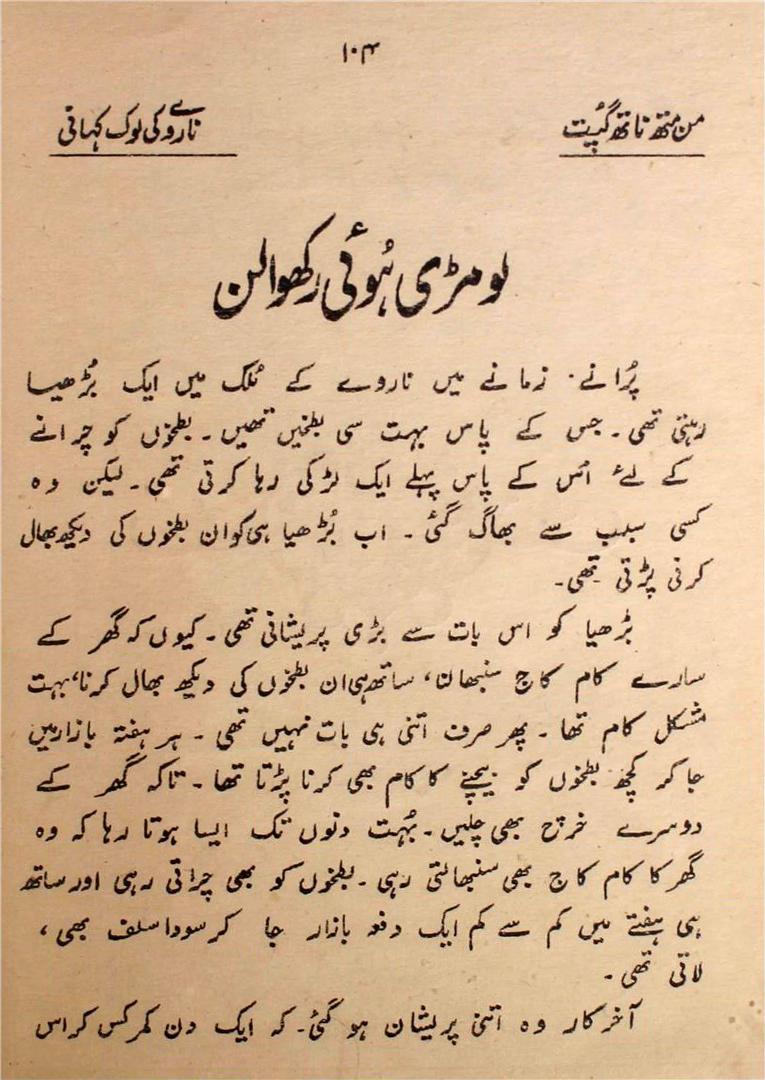 ۱۰۴
من متھ ناتھ گپت
ناروے کی لوک کہانی
لومڑی ہُوئی رکھوالن
پُرانے زمانے میں ناروے کے مُلک میں ایک بُڑھیا
رہتی تھی۔ جس کے پاس بہت سی بطخیں تھیں۔ بطخوں کو چرانے
کے لئے اُس کے پاس پہلے ایک لڑکی رہا کرتی تھی۔ لیکن وہ
کسی سبب سے بھاگ گئی۔ اب بُڑھیا ہی کو ان بطخوں کی دیکھ بھال
کرنی پڑتی تھی۔
بڑھیا کو اس بات سے بڑی پریشانی تھی۔ کیوں کہ گھر کے
سارے کام کاج سنبھالنا، ساتھ ہی ان بطخوں کی دیکھ بھال کرنا، بہت
مشکل کام تھا۔ پھر صرف اتنی ہی بات نہیں تھی۔ ہر ہفتہ بازار میں
جا کر کچھ بطخوں کو بیچنے کا کام بھی کرنا پڑتا تھا۔ تاکہ گھر کے
دوسرے خرچ بھی چلیں۔ بُہت دنوں تک ایسا ہوتا رہا کہ وہ
گھر کا کام کاج بھی سنبھالتی رہی۔ بطخوں کو بھی چراتی رہی اور ساتھ
ہی ہفتے میں کم سے کم ایک دفعہ بازار جا کر سودا سلف بھی،
لاتی تھی۔
آخر کار وہ اتنی پریشان ہو گئی۔ کہ ایک دن کمر کس کر اس